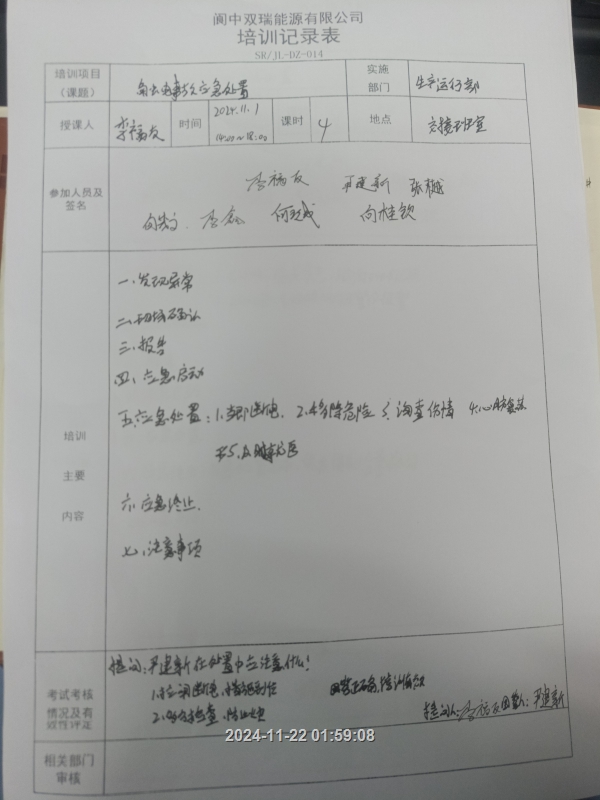 阆中双瑞能源有限公司
培训记录表
SR/JL-DZ-014
培训项目（课题）
触电事故应急处置
实施部门
生产运行部
授课人
李福友
时间
2024.11.1
14:00~18:00
课时
4
地点
交接班室
参加人员及签名
李福友 严建新 张樾
李鑫 向桂钦
培训主要内容
一、发现异常
二、现场确认
三、报告
四、应急启动
五、应急处置：1.立即断电. 2.移除危险 3.询查伤情 4.心肺复苏
六、应急终止.
七、注意事项
考试考核情况及有效性评定
提问：严建新在处置中应注意什么？
回答正确，培训有效
提问人：李福友 回答人：严建新
相关部门审核
2024-11-22 01:59:08